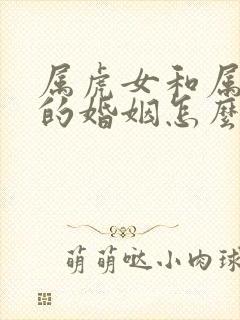 属虎女和属
的婚姻怎麼
萌萌哒小肉球